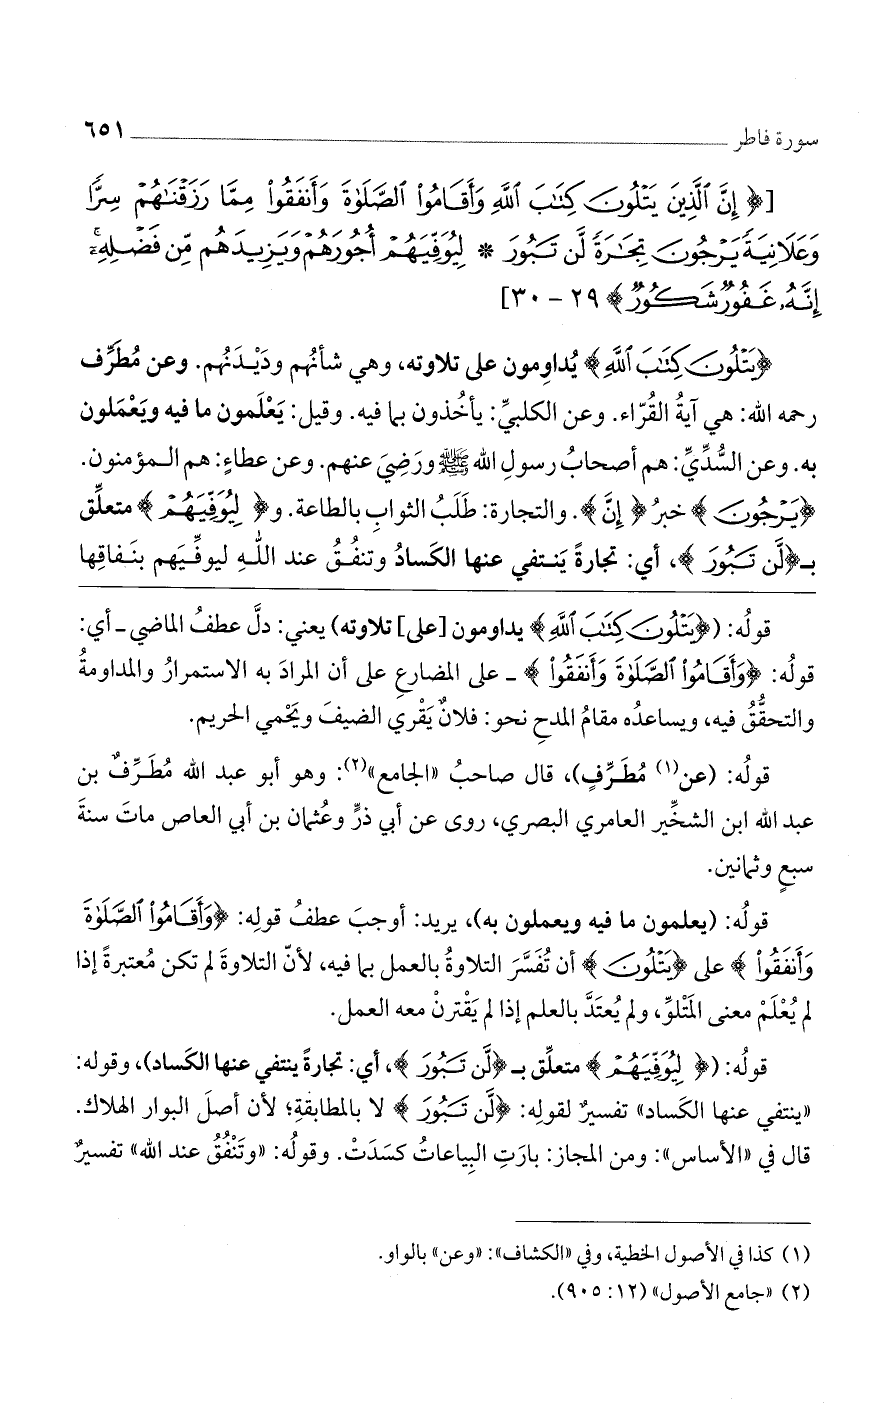 سورة فاطر ٦٥١
[﴿إِنَّ ٱلَّذِينَ يَتْلُونَ كِتَٰبَ ٱللَّهِ وَأَقَامُوا۟ ٱلصَّلَوٰةَ وَأَنفَقُوا۟ مِمَّا رَزَقْنَٰهُمْ سِرًّا
وَعَلَانِيَةً يَرْجُونَ تِجَٰرَةً لَّن تَبُورَ * لِيُوَفِّيَهُمْ أُجُورَهُمْ وَيَزِيدَهُم مِّن فَضْلِهِۦٓ ۚ
إِنَّهُۥ غَفُورٌ شَكُورٌ﴾ ٢٩ - ٣٠]
﴿يَتْلُونَ كِتَٰبَ ٱللَّهِ﴾ يُداوِمون على تلاوته، وهي شأنُهم ودَيْدَنُهم. وعن مُطَرِّف
رحمه الله: هي آيةُ القُرّاء. وعن الكلبيِّ: يأخُذون بما فيه. وقيل: يَعْلَمون ما فيه ويَعْمَلون
به. وعن السُّدِّيِّ: هم أصحابُ رسولِ الله ﷺ ورَضِيَ عنهم. وعن عطاءٍ: هم المؤمنون.
﴿يَرْجُونَ﴾ خبرُ ﴿إِنَّ﴾. والتجارة: طَلَبُ الثوابِ بالطاعة. و﴿لِيُوَفِّيَهُمْ﴾ متعلِّق
بـ﴿لَّن تَبُورَ﴾، أي: تجارةً يَنـتفي عنها الكَسادُ وتنفُقُ عند اللهِ ليوفِّيَهم بنَفاقِها
قولُه: (﴿يَتْلُونَ كِتَٰبَ ٱللَّهِ﴾ يداومون [على] تلاوته) يعني: دلَّ عطفُ الماضي - أي:
قولُه: ﴿وَأَقَامُوا۟ ٱلصَّلَوٰةَ وَأَنفَقُوا۟﴾ - على المضارعِ على أن المرادَ به الاستمرارُ والمداومةُ
والتحقُّقُ فيه، ويساعدُه مقامُ المدحِ نحو: فلانٌ يَقْري الضيفَ ويَحْمي الحريم.
قولُه: (عن(١) مُطَرِّفٍ)، قال صاحبُ «الجامع»(٢): وهو أبو عبد الله مُطَرِّفٌ بن
عبد الله ابن الشخِّير العامري البصري، روى عن أبي ذرٍّ وعُثمان بن أبي العاص ماتَ سنةَ
سبعٍ وثمانين.
قولُه: (يعلمون ما فيه ويعملون به)، يريد: أوجبَ عطفُ قولِه: ﴿وَأَقَامُوا۟ ٱلصَّلَوٰةَ
وَأَنفَقُوا۟﴾ على ﴿يَتْلُونَ﴾ أن تُفَسَّرَ التلاوةُ بالعمل بما فيه، لأنّ التلاوةَ لم تكن مُعتبرةً إذا
لم يُعْلَمْ معنى المَتْلوِّ، ولم يُعتَدَّ بالعلم إذا لم يَقْترنْ معه العمل.
قولُه: (﴿لِيُوَفِّيَهُمْ﴾ متعلِّق بـ﴿لَّن تَبُورَ﴾، أي: تجارةً ينتفي عنها الكَساد)، وقوله:
«ينتفي عنها الكَساد» تفسيرٌ لقولِه: ﴿لَّن تَبُورَ﴾ لا بالمطابقةِ؛ لأن أصلَ البوار الهلاك.
قال في «الأساس»: ومن المجاز: بارَتِ البِياعاتُ كسَدَتْ. وقولُه: «وتَنْفُقُ عند الله» تفسيرٌ
(١) كذا في الأصول الخطية، وفي «الكشاف»: «وعن» بالواو.
(٢) «جامع الأصول» (١٢: ٩٠٥).